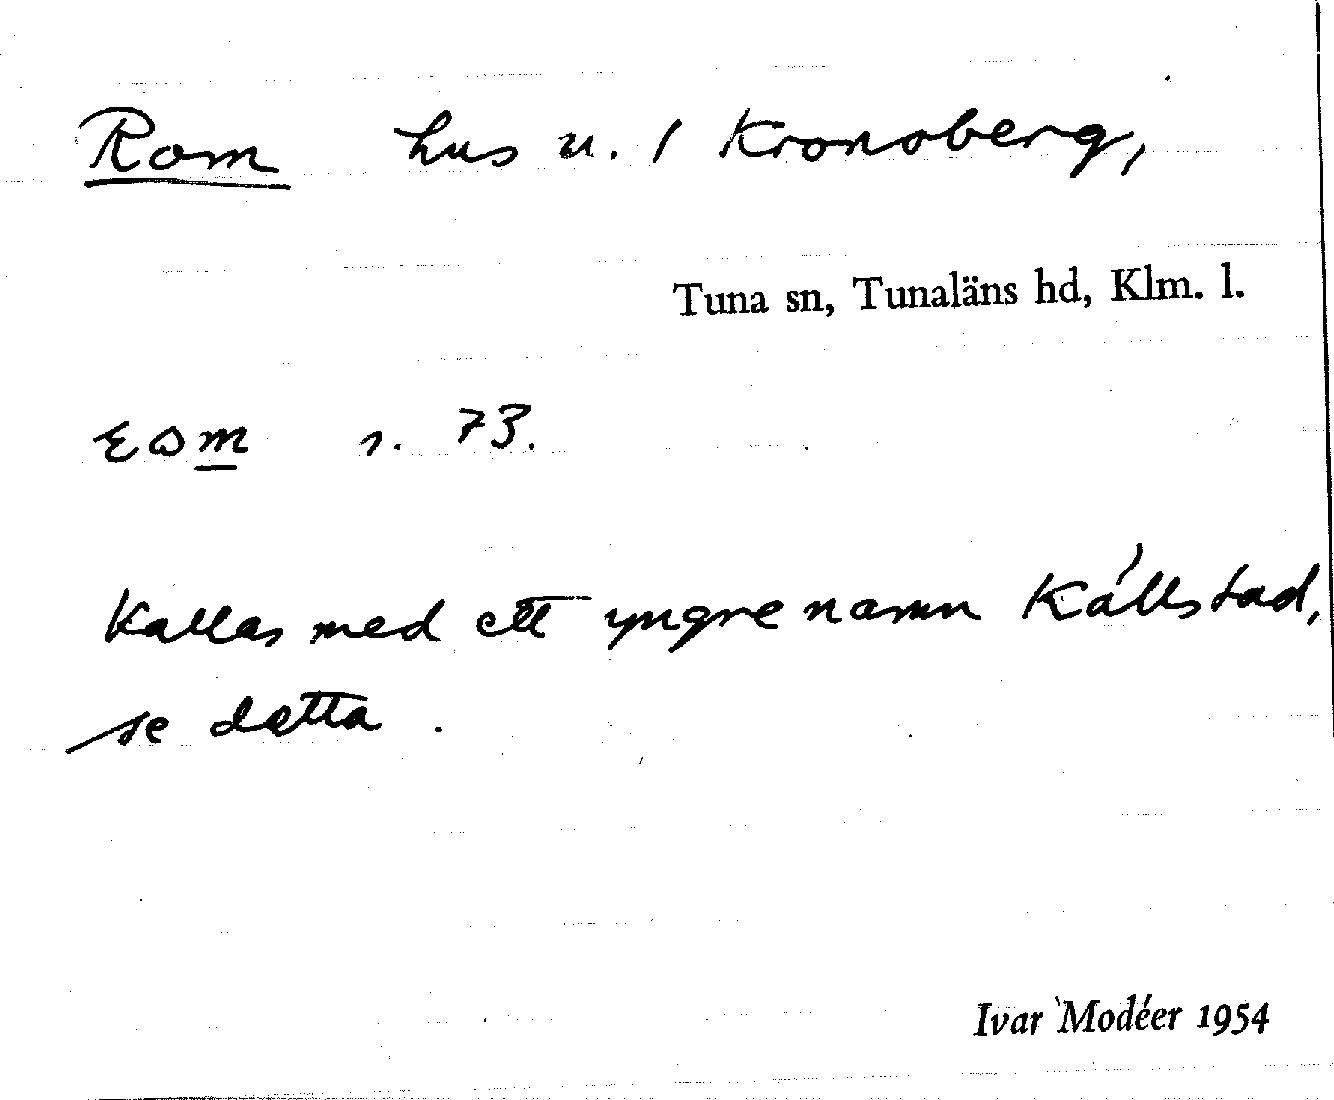 Rom hus u. / Kronoberg,
Tuna sn, Tunaläns hd, Klm. l.
s. 73.
Kallas med ett yngre namn Källstad,
se detta.
Ivar Modéer 1954